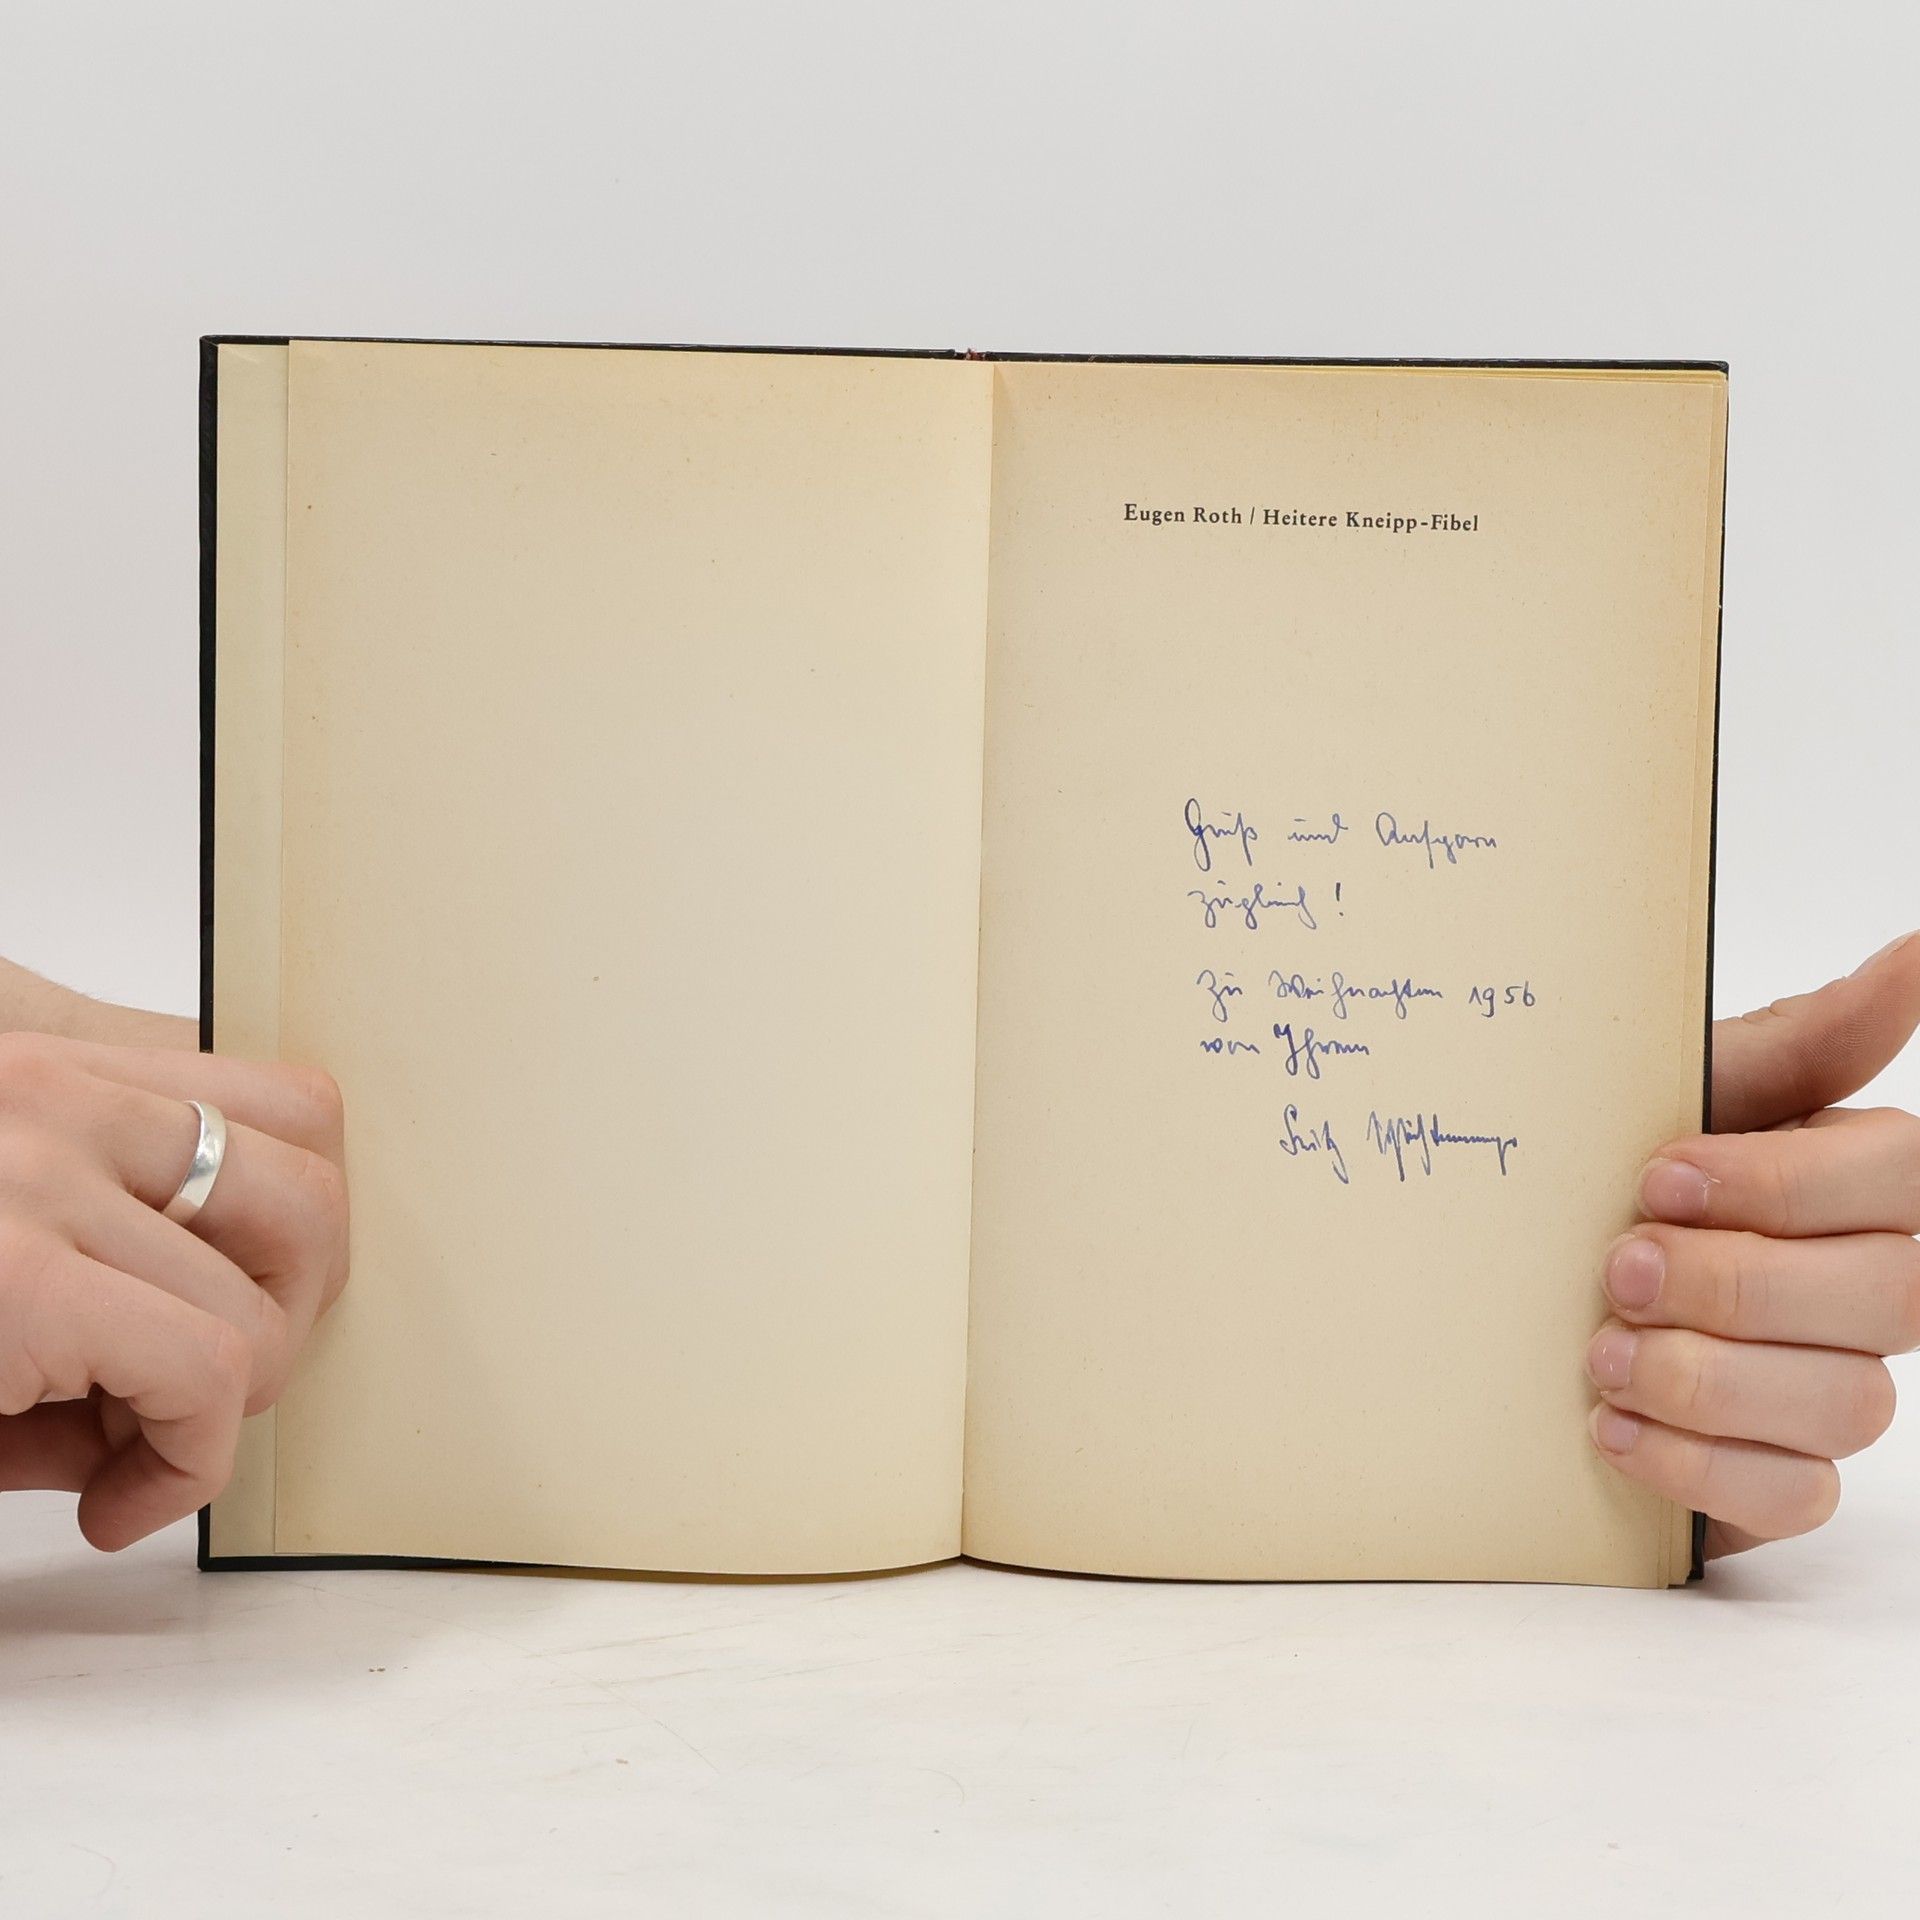 Eugen Roth / Heitere Kneipp-Fibel
Gruß und Ansporn
zugleich!
Zu Weihnachten 1956
von Ihrem
Fritz